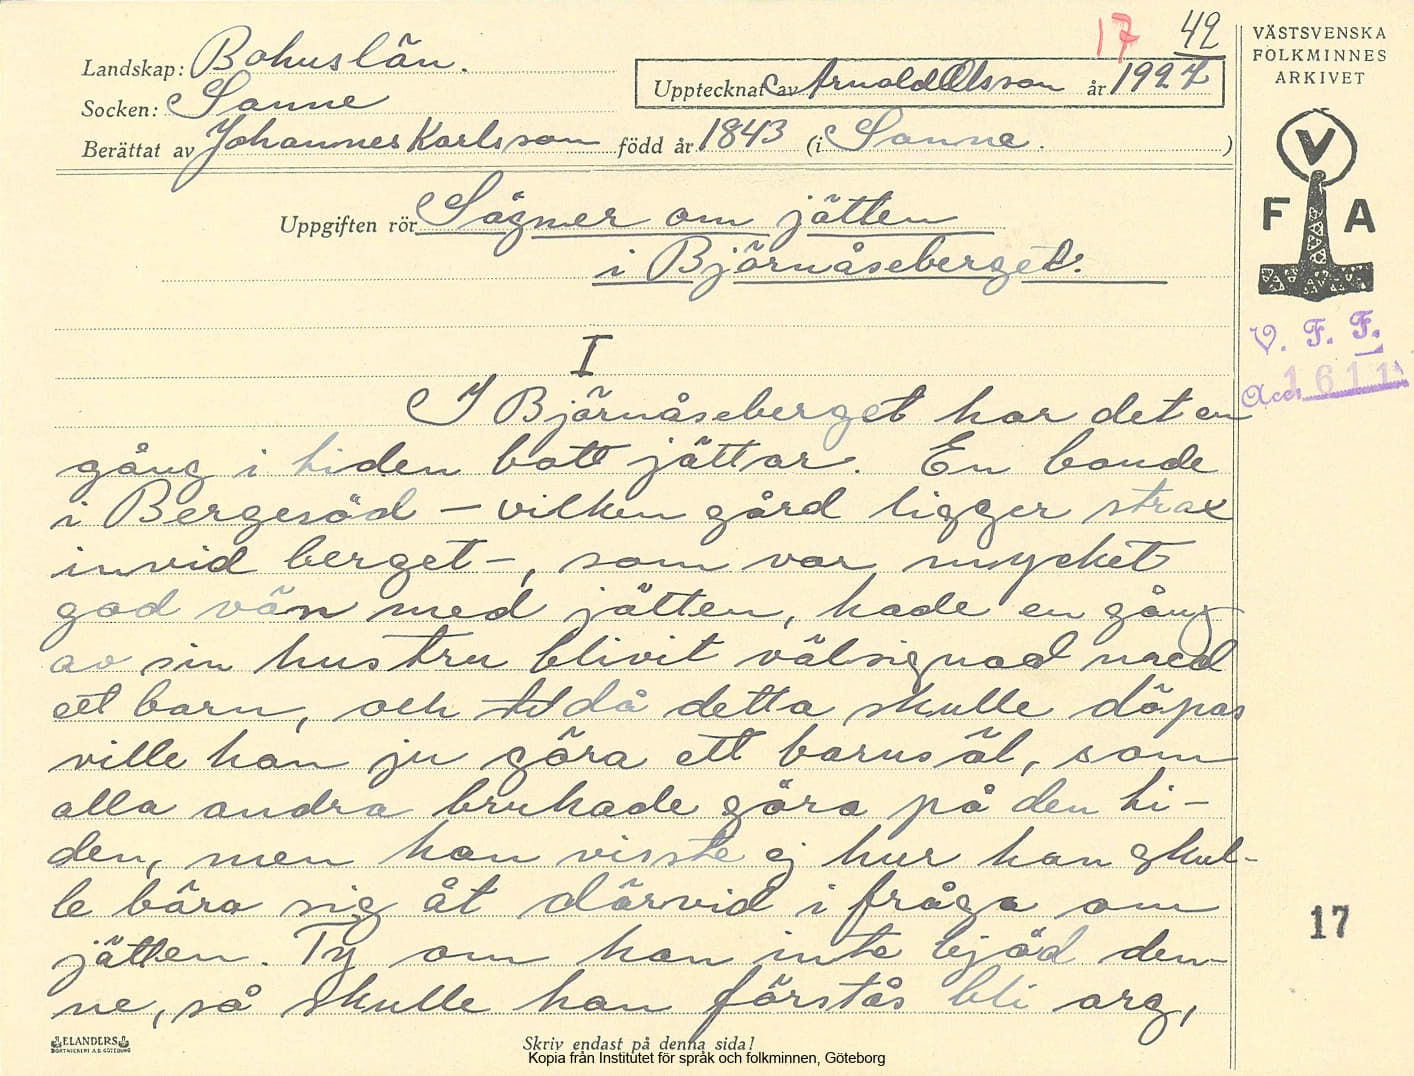 17 42
VÄSTSVENSKA
FOLKMINNES
ARKIVET
Landskap: Bohuslän.
Upptecknat av Arnold Olsson år 1927
Socken: Sanne
Berättat av Johannes Karlsson född år 1843 (i Sanne.)
V
F A
Uppgiften rör Sägner om jätten
i Björnåseberget.
V. F. F.
Acc. 1611
I
I Björnåseberget har det en
gång i tiden bott jättar. En bonde
i Bergesöd – vilken gård ligger strax
invid berget –, som var mycket
god vän med jätten, hade en gång
av sin hustru blivit välsignad med
ett barn, och då detta skulle döpas
ville han ju göra ett barnsöl, som
alla andra brukade göra på den ti-
den, men han visste ej hur han skul-
le bära sig åt därvid i fråga om
jätten. Ty om han inte bjöd den-
ne, så skulle han förstås bli arg,
17
ELANDERS
BOKTRYCKERI A.B. GÖTEBORG
Skriv endast på denna sida!
Kopia från Institutet för språk och folkminnen, Göteborg